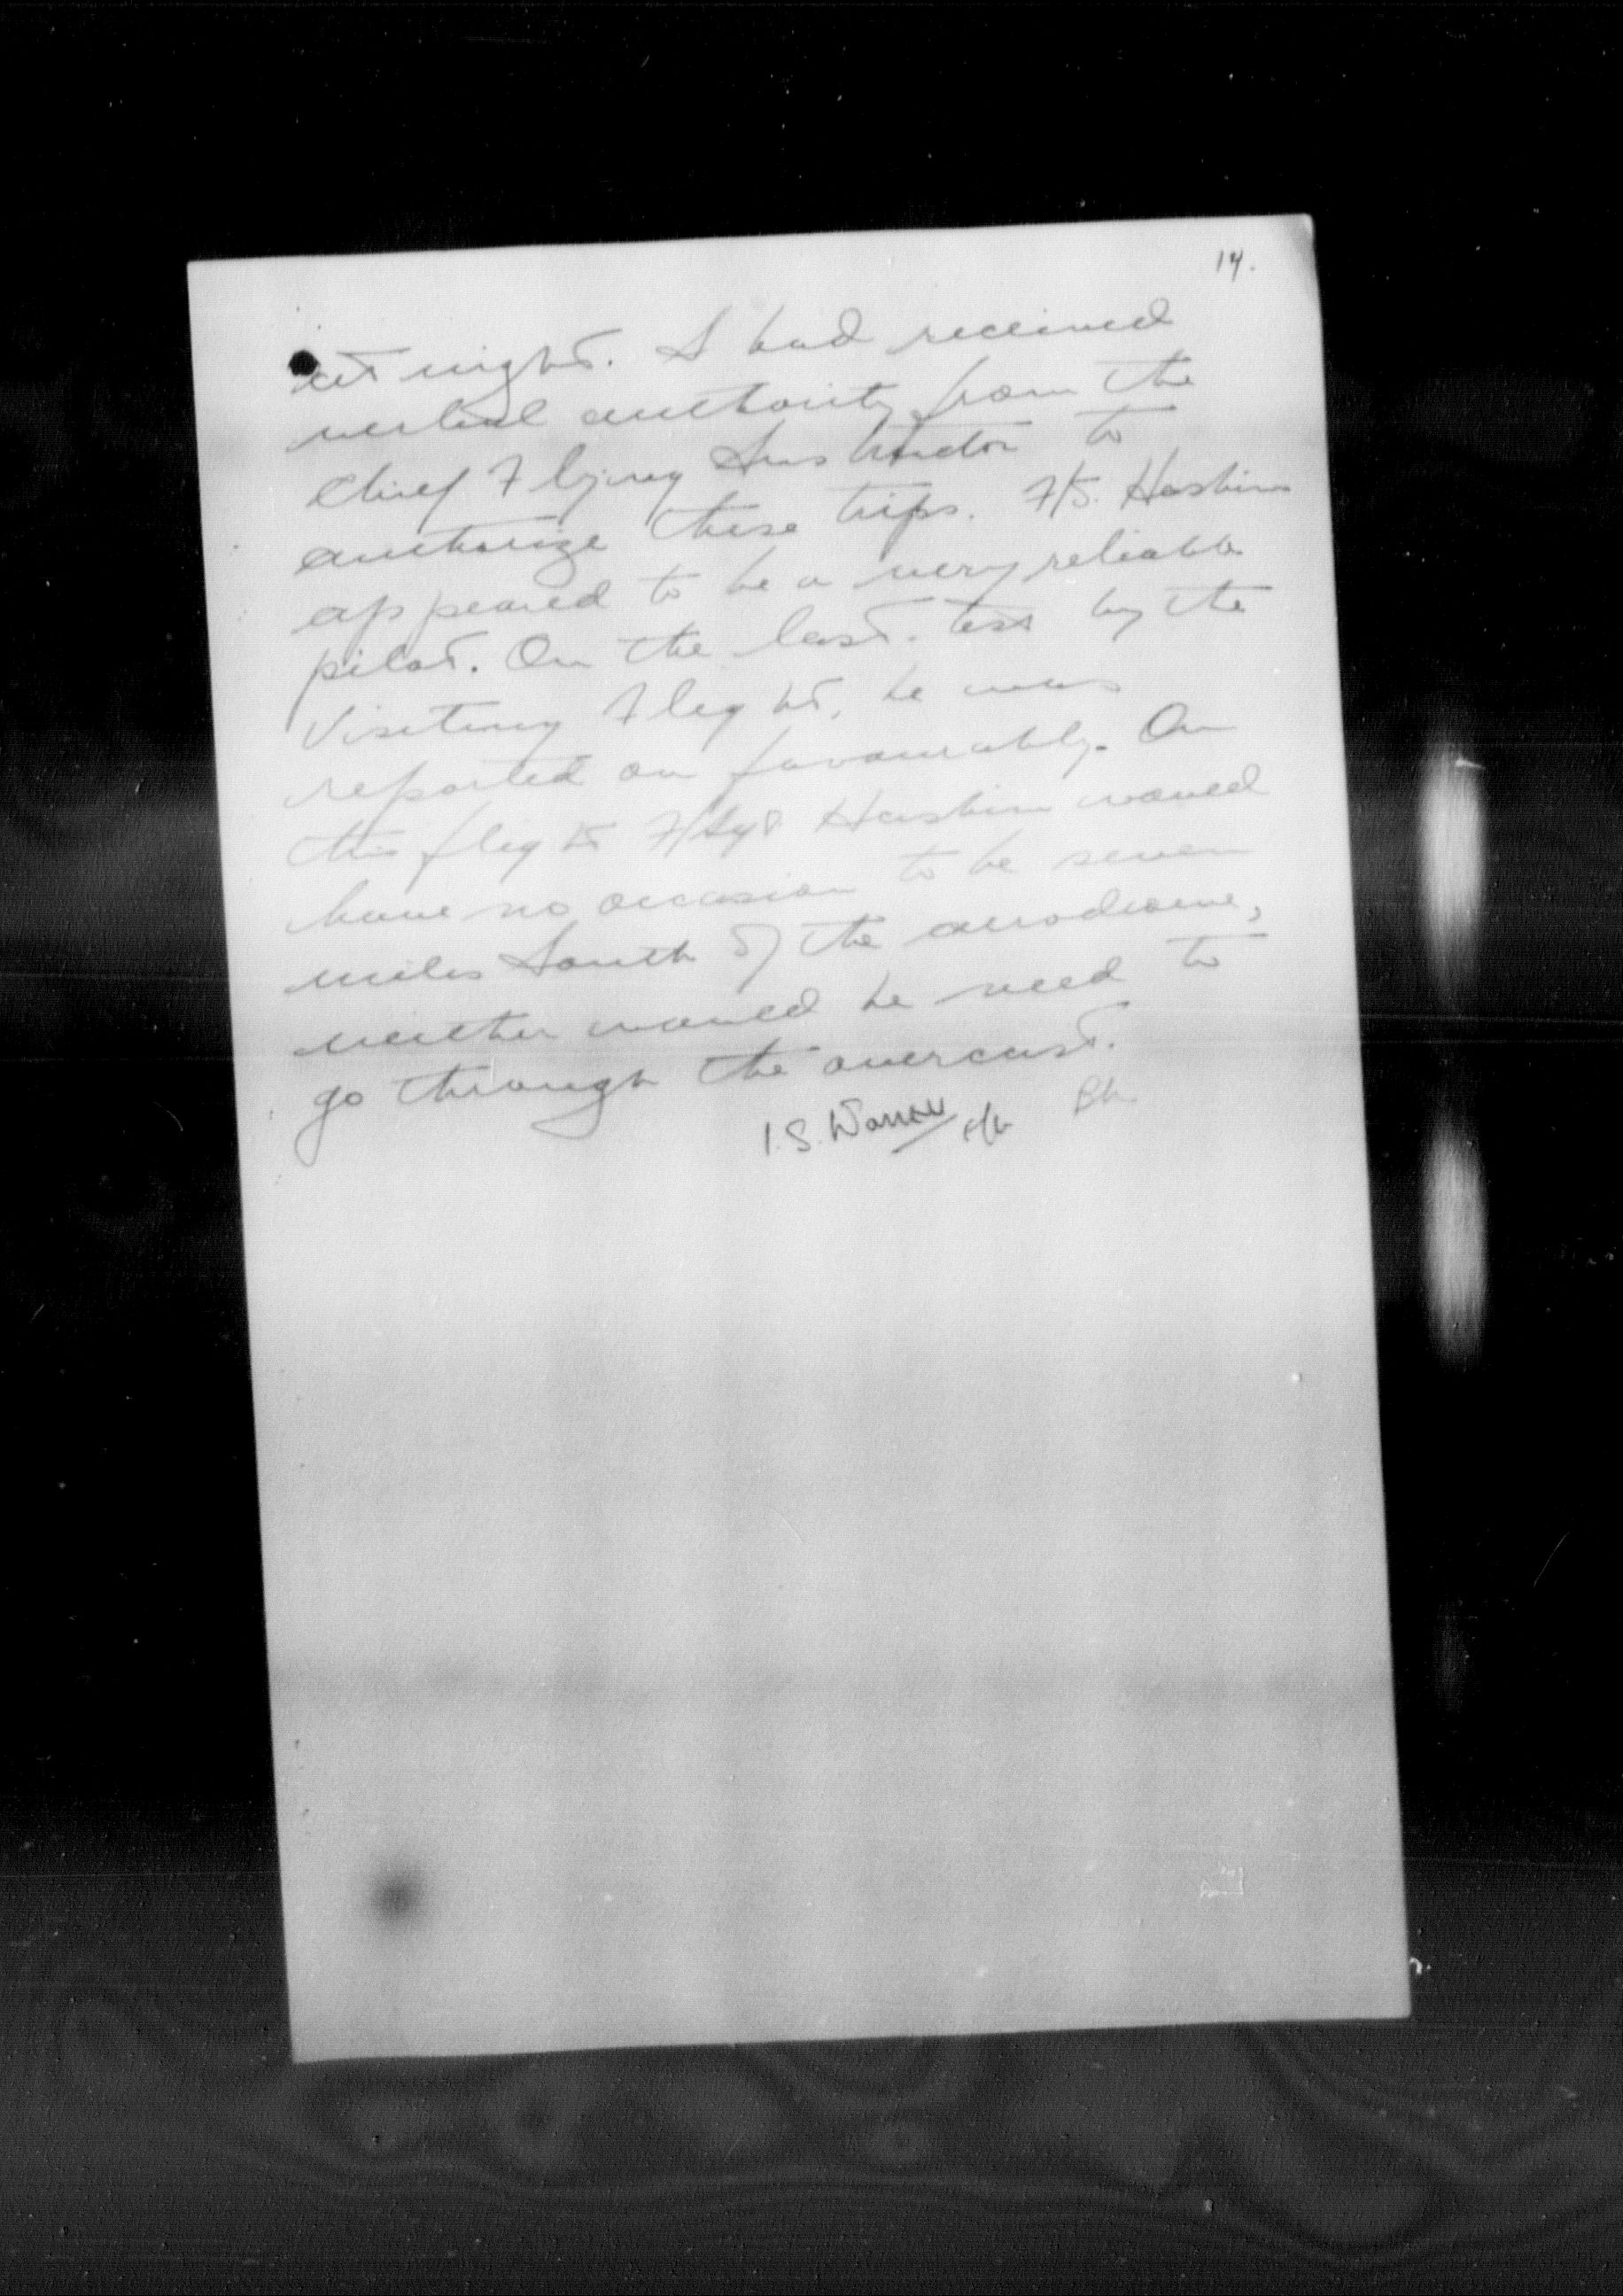 14.
at night. I had received
verbal authority from the
Chief Flying Instructor to
authorize these trips. F/S. Haskins
appeared to be a very reliable
pilot. On the last test by the
Visiting Flight, he was
reported on favourably. On
this flight F/Sgt Haskins would
have no occasion to be seven
miles South of the aerodrome,
neither would he need to
go through the overcast.
I.S. Warren